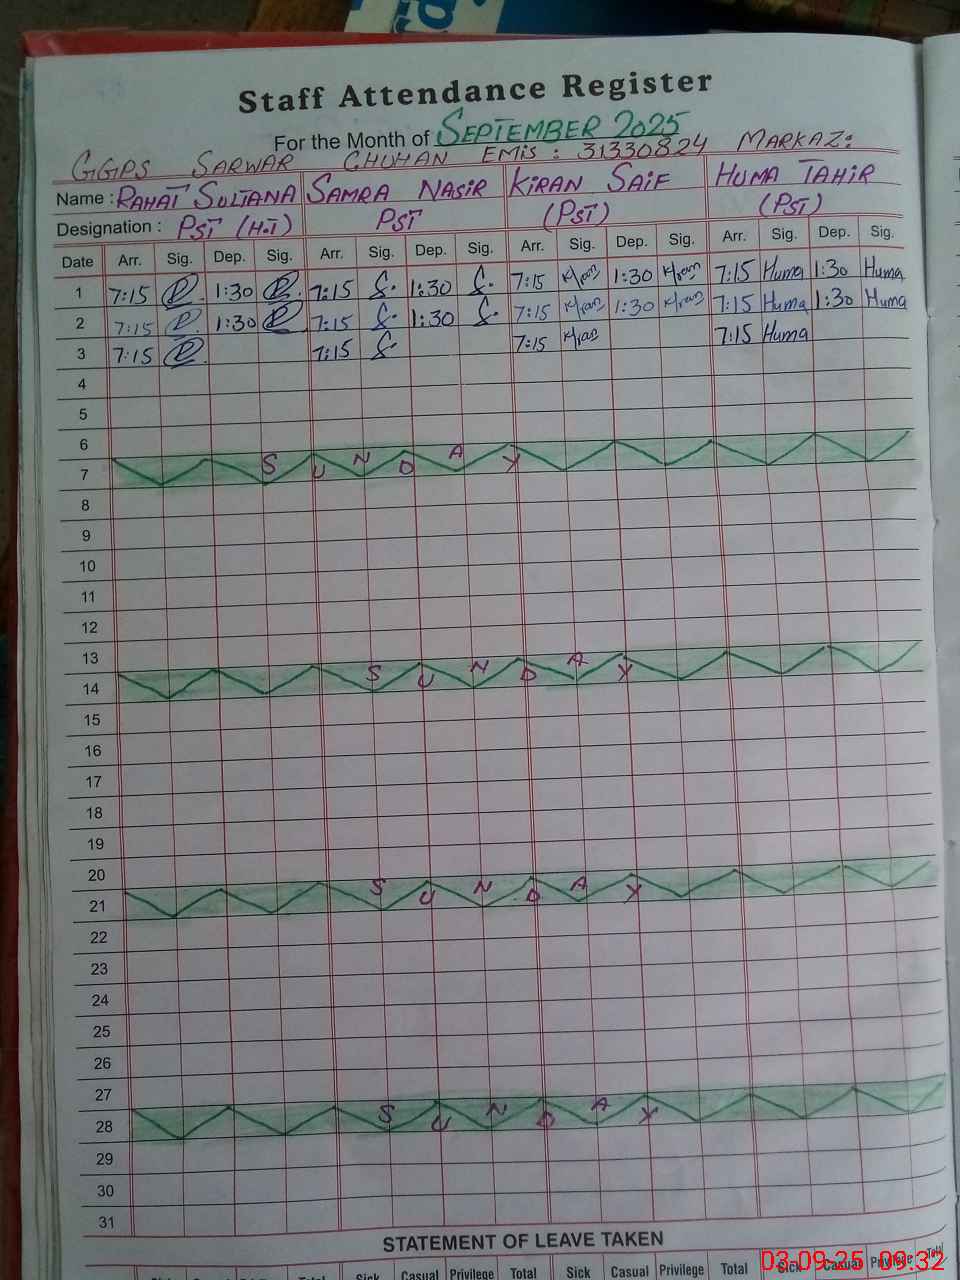 Staff Attendance Register
For the Month of SEPTEMBER 2025
GGPS SARWAR CHUHAN EMIS : 31330824 MARKAZ:
Name : RAHAT SULTANA SAMRA NASIR KIRAN SAIF HUMA TAHIR
Designation : PST (H.T) PST (PST) (PST)
Date Arr. Sig. Dep. Sig. Arr. Sig. Dep. Sig. Arr. Sig. Dep. Sig. Arr. Sig. Dep. Sig.
1 7:15 1:30 7:15 S. 1:30 S. 7:15 Kiran 1:30 Kiran 7:15 Huma 1:30 Huma
2 7:15 1:30 7:15 S. 1:30 S. 7:15 Kiran 1:30 Kiran 7:15 Huma 1:30 Huma
3 7:15 7:15 S. 7:15 Kiran 7:15 Huma
4
5
6
7 SUNDAY
8
9
10
11
12
13
14 SUNDAY
15
16
17
18
19
20
21 SUNDAY
22
23
24
25
26
27
28 SUNDAY
29
30
31
STATEMENT OF LEAVE TAKEN
Total Sick Casual Privilege Total Sick Casual Privilege Total Sick Casual Privilege
03-09-25 09:32